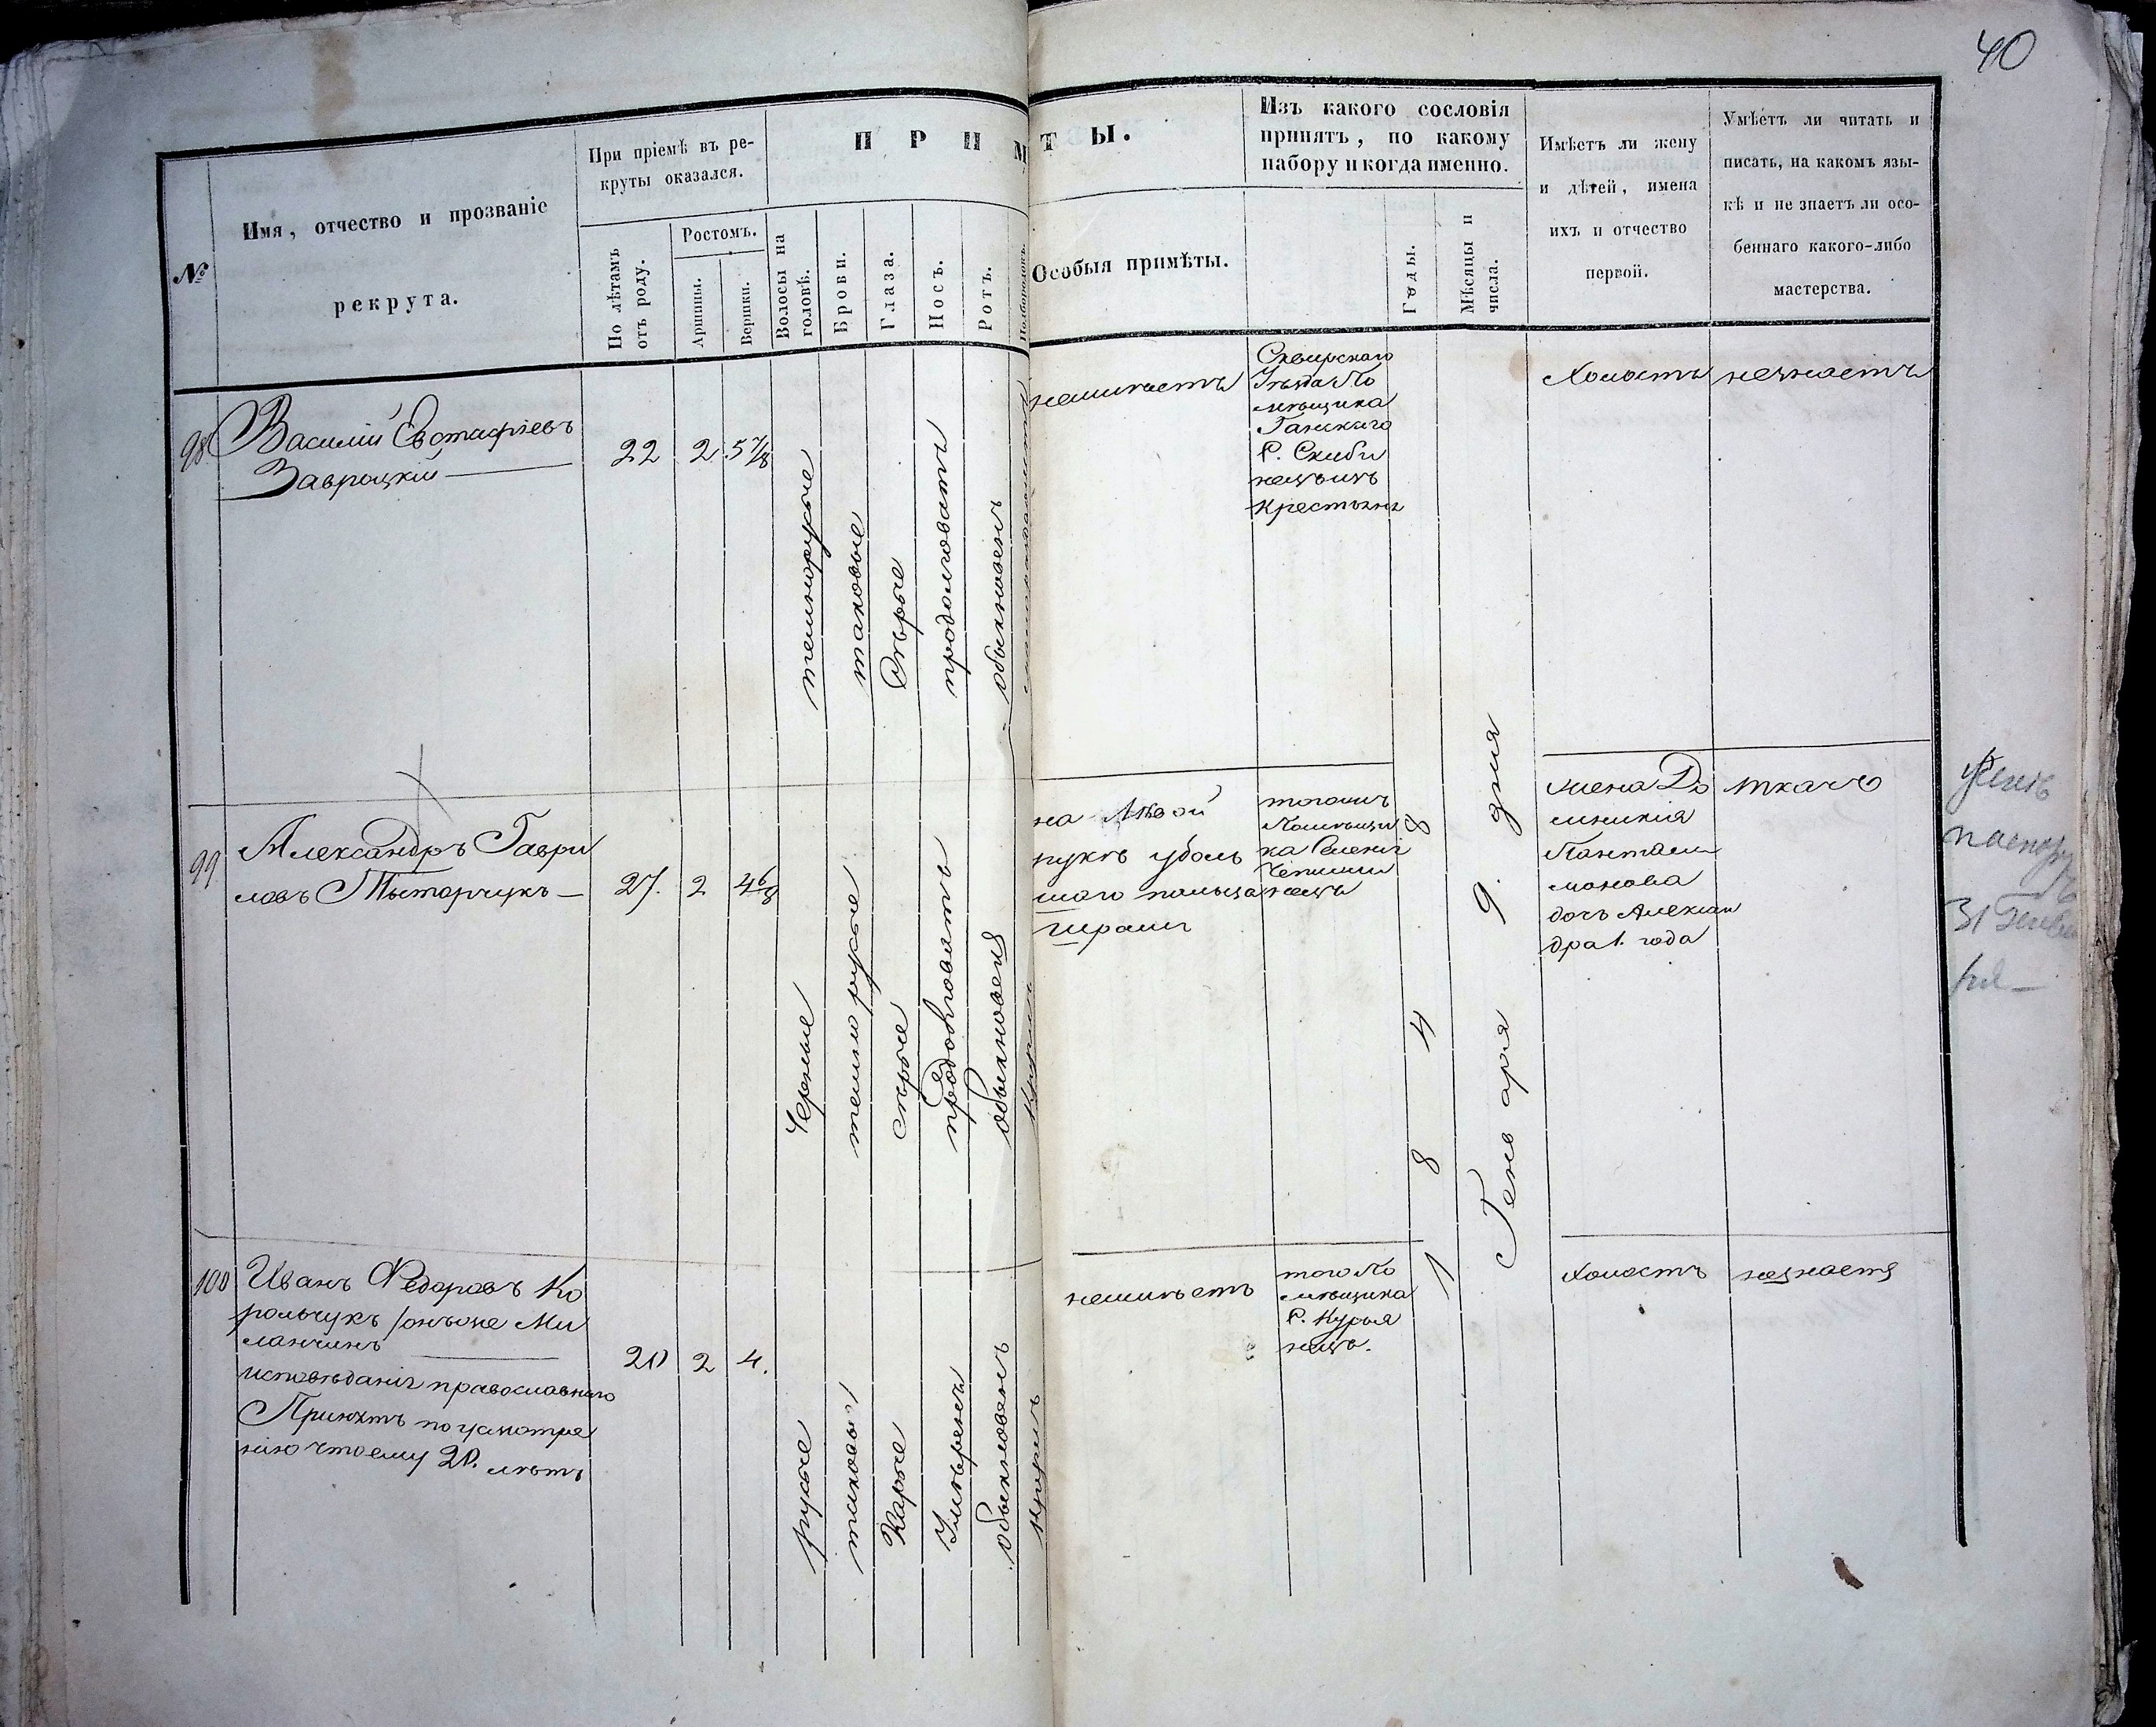 40
ПРИМѢТЫ.
№
Имя, отчество и прозваніе
рекрута.
При пріемѣ въ ре-
круты оказался.
По лѣтамъ
отъ роду.
Ростомъ.
Аршины.
Вершки.
Волосы на
головѣ.
Брови.
Глаза.
Носъ.
Ротъ.
Подбородокъ.
Особыя примѣты.
Изъ какого сословія
принятъ, по какому
набору и когда именно.
Годы.
Мѣсяцы и
числа.
Имѣетъ ли жену
и дѣтей, имена
ихъ и отчество
первой.
Умѣетъ ли читать и
писать, на какомъ язы-
кѣ и не знаетъ ли осо-
беннаго какого-либо
мастерства.
98
Василій Евстафіевъ
Завроцкій
22
2
5 7/8
темнорусые
таковые
Сѣрые
продолговатъ
обыкновенъ
неимѣетъ
Сквирскаго
Уѣзда По
мѣщика
Ганскаго
С. Скиби
нецъ изъ
крестьянъ
Холостъ
незнаетъ
99
Александръ Гаври
ловъ Тытарчукъ
27.
2
4 6/8
Черные
темно русые
сѣрые
продолговатъ
обыкновенъ
Кругла
на лѣвой
рукѣ у боль
шаго пальца
шрамъ
тогожъ
Помѣщи
ка Селенія
нецъ
жена До
миникія
Пантали
монова
дочь Алексан
дра 1. года
ткачъ
31 Генва
ря
1848
Генваря 9. дня
100
Иванъ Федоровъ Ко
рольчукъ /онъ же Ми
ланчинъ
исповѣданія православнаго
Принятъ по усмотре
нію что ему 20. лѣтъ
20
2
4.
русые
таковыя
Карые
Умѣренъ
обыкновенъ
круглъ
неимѣетъ
того По
мѣщика
С. Курья
нецъ.
холостъ
незнаетъ